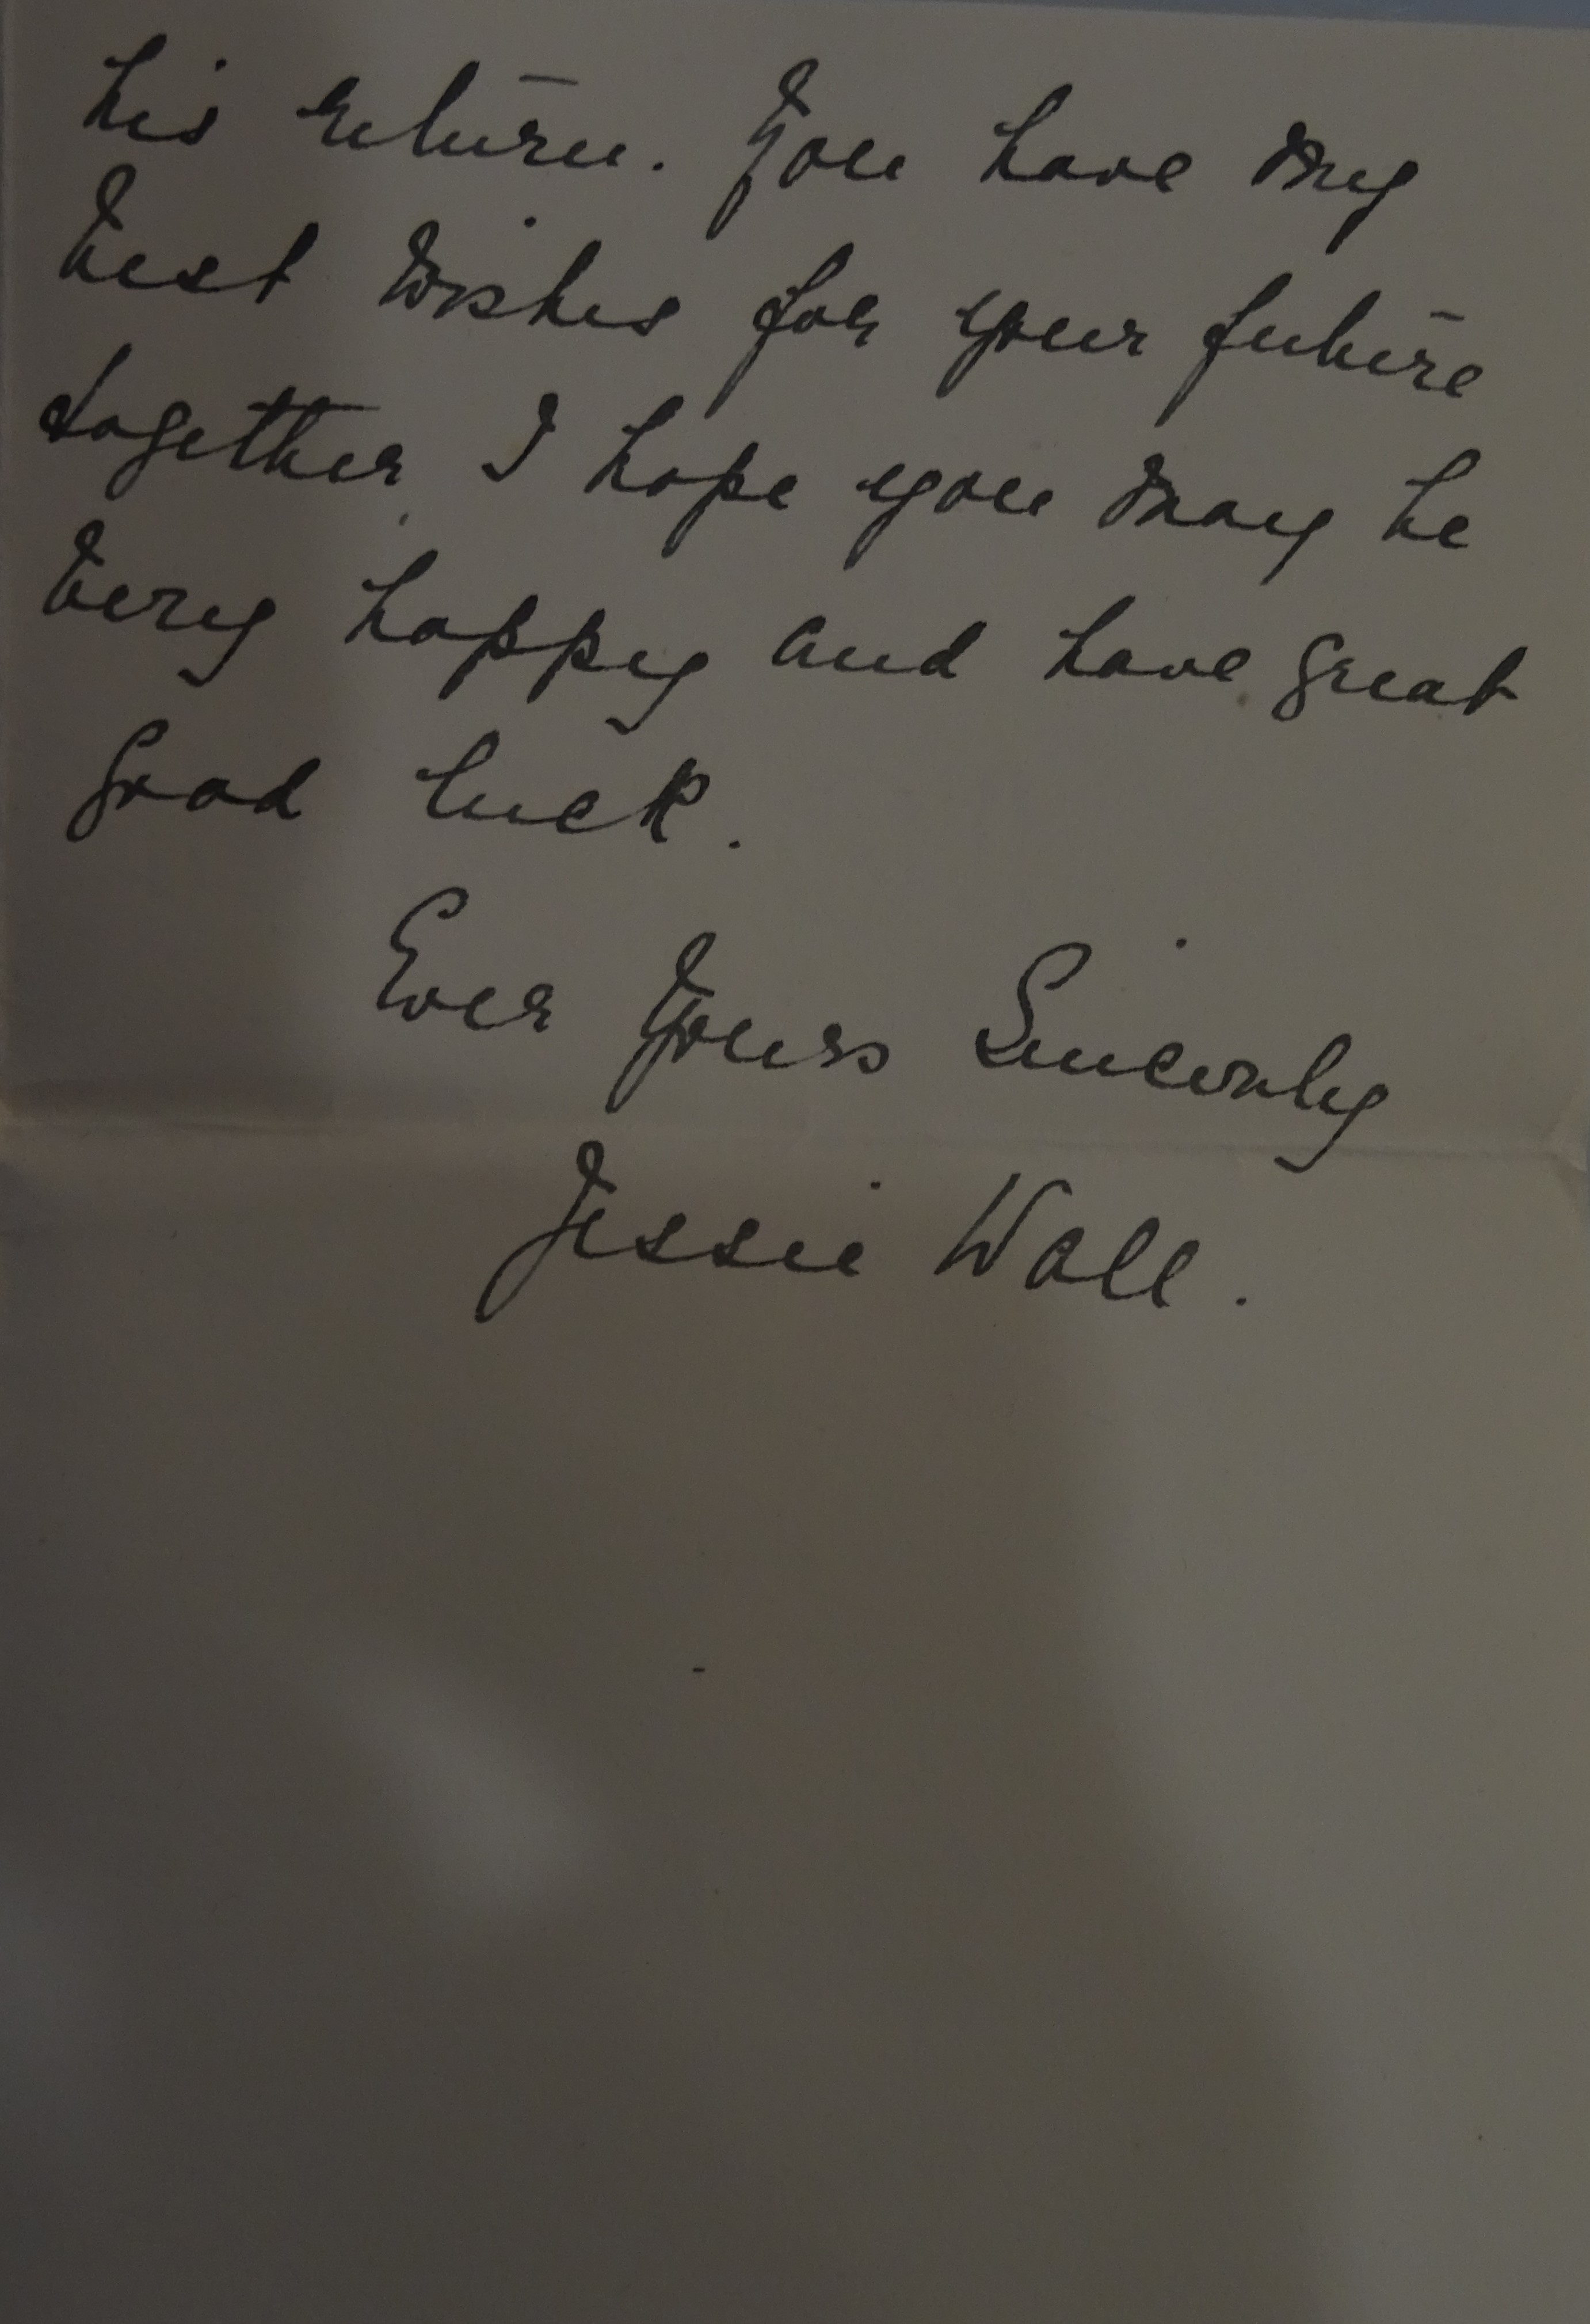 his return. You have my
best wishes for your future
together, I hope you may be
very happy and have great
good luck.
Ever Yours Sincerly
Jessie Wall.